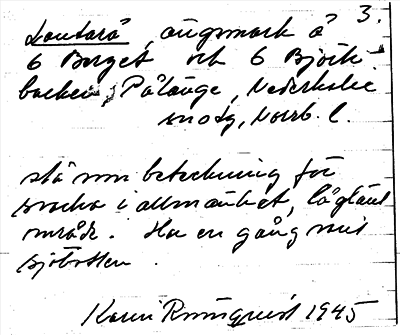 3.
Lantarå, ängsmark å
6 Berget och 6 Björk-
backen, Pålänge, Nederkalix
sn, Norrb. l.
stå som beteckning för
marker i allmänhet, låglänt
område. Har en gång varit
sjöbotten.
Karin Rönnquist 1945